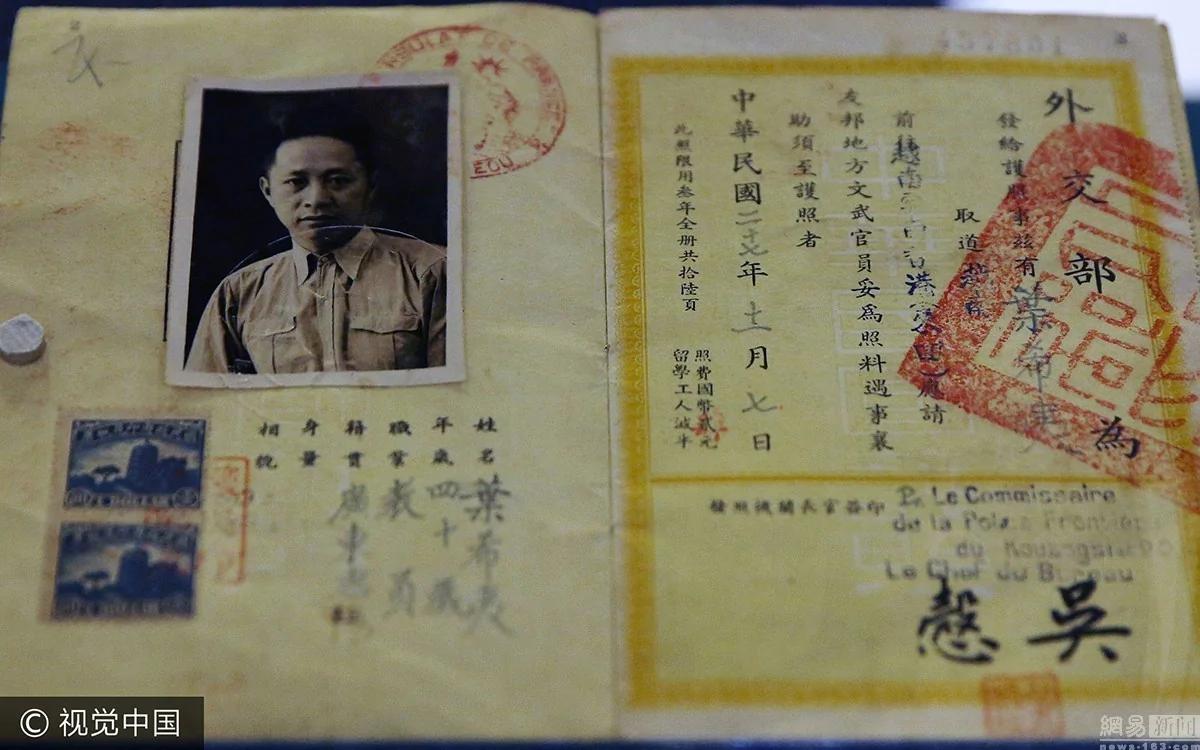 CONSULAT DE FRANCE
姓名 葉希夷
年歲 四十
職業 教員
籍貫 廣東
身量
相貌
457801
外交部為
發給護照事茲有葉希夷
取道越南
前往越南 香港 應請
友邦地方文武官員妥爲照料遇事襄
助須至護照者
中華民國二十七年十一月七日
此照限用叁年全册共拾陸頁
照費國幣貳元
留學工人減半
發照機關長官 印
P. Le Commissaire
de la Police Frontière
du
Le Chef du Bureau
吳慤
© 视觉中国
網易 新闻
news.163.com